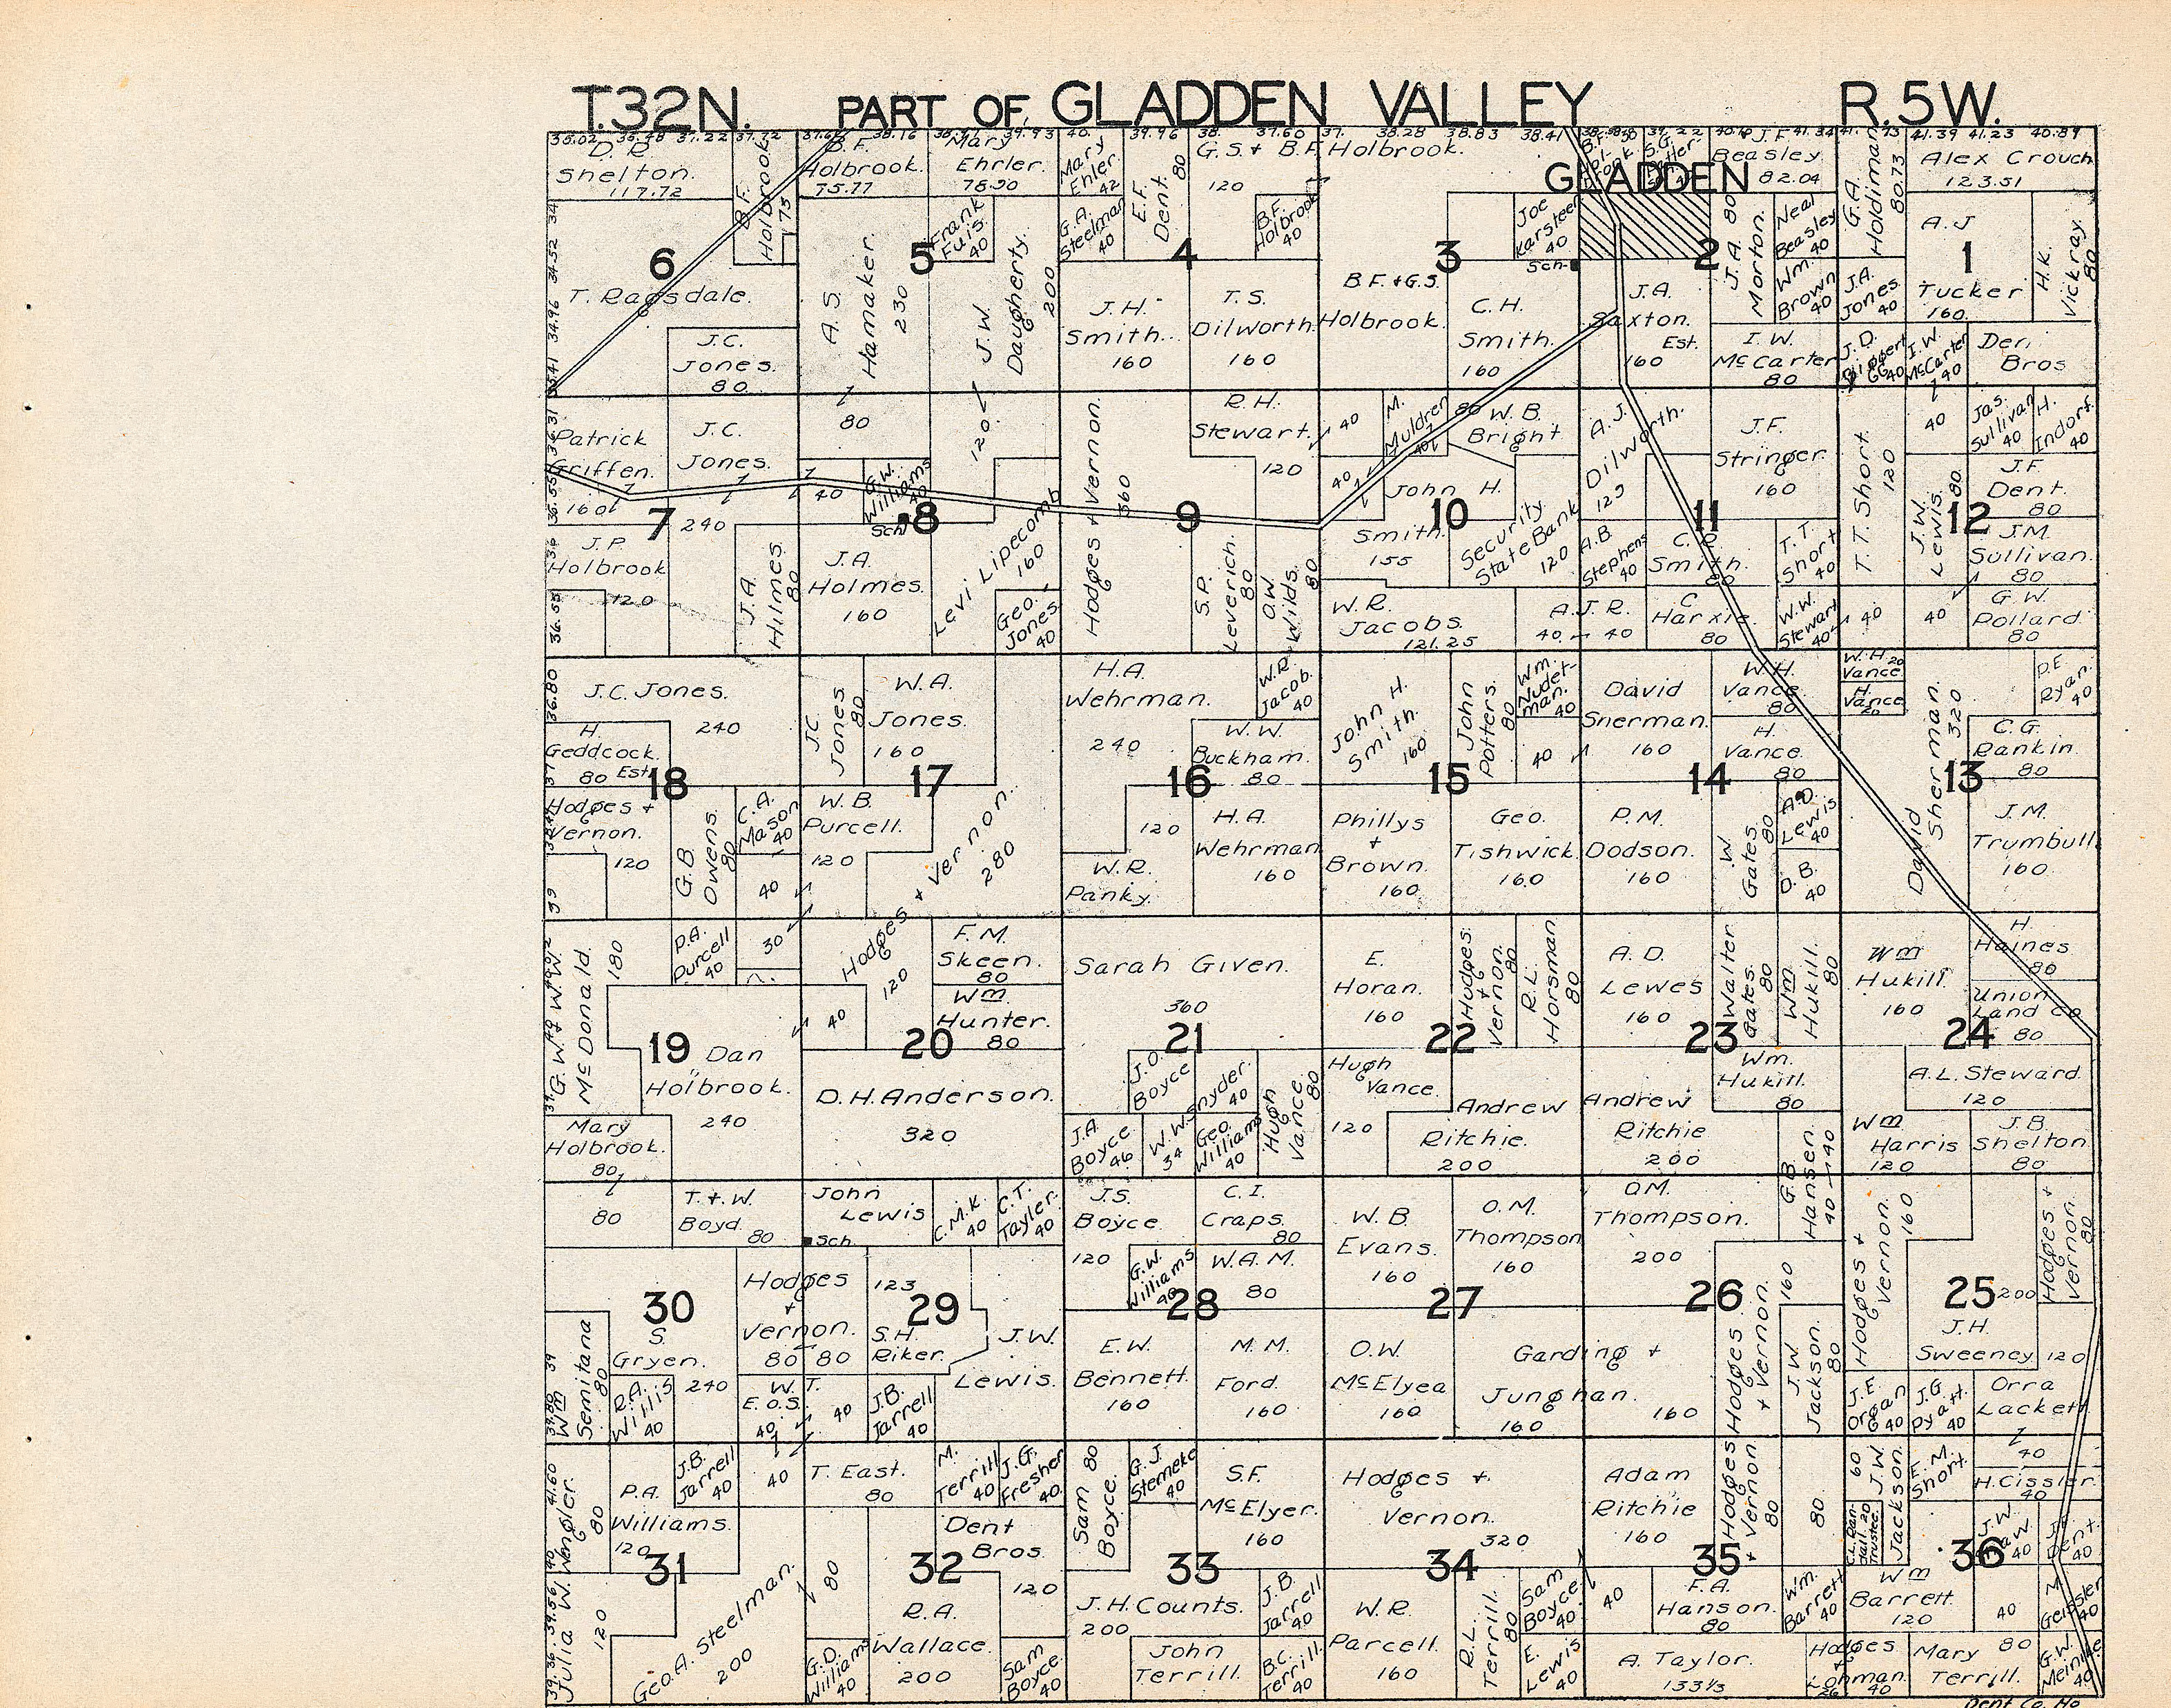 T.32N. PART OF GLADDEN VALLEY R.5W.
35.02 35.48 37.22 37.72 38.16 39.93 40. 39.96 38. 37.60 37. 38.28 38.83 38.41 41.39 41.23 40.89
GLADDEN
D. R.
Shelton.
117.72
B.F.
Holbrook
73
6
T. Ragsdale.
J.C.
Jones.
80
B.F.
Holbrook.
75.77
Mary
Ehrler
78.90
A.S.
Hamaker.
230
Frank
Fuis.
40
5
J.W.
Daugherty.
200
Mary
Ehler.
42
E.F.
Dent.
80
G.S. & B.F. Holbrook.
120
G.A.
Steelman
40
B.F.
Holbrook
40
4
J.H.
Smith.
160
T.S.
Dilworth.
160
Joe
Karsteen
40
Sch.
3
B.F. & G.S.
Holbrook.
C.H.
Smith.
160
J.F.
Beasley
82.04
J.A.
Morton.
80
Neal
Beasley
40
Wm.
Brown
40
2
J.A.
Saxton.
Est.
160
I.W.
McCarter
80
G.A.
Holdiman
80.73
Alex Crouch
123.51
A.J
Tucker
160.
1
H.K.
Vickray.
80
J.A.
Jones.
40
J.D.
40
I.W.
McCarter
40
Den.
Bros
Patrick
Griffen.
160
J.C.
Jones.
240
7
J.P.
Holbrook
120
J.A.
Hilmes.
80
80
G.W.
Williams
40
40
Sch.
8
120
J.A.
Holmes.
160
Levi Lipecomb
160
Geo.
Jones.
40
Hodges & Vernon.
360
R.H.
Stewart.
120
9
S.P.
Leverich.
80
O.W.
Wilds.
80
40
M.
Muldren
40
80
W.B.
Bright
40
John H.
Smith.
155
10
Security
State Bank
120
W.R.
Jacobs.
121.25
A.J.R.
40 40
A.J.
Dilworth.
J.F.
Stringer
160
11
A.B.
Stephens
40
C. R.
Smith.
80
T.T.
Short
40
C
Harxie.
80
W.W.
Stewart
40
T.T. Short.
120
40
Jas.
Sullivan
40
H.
Indorf.
40
J.F.
Dent.
80
J.W.
Lewis.
80
12
J.M.
Sullivan.
80
40
40
G.W.
Pollard.
80
J.C. Jones.
240
H.
Geddcock.
80 Est.
18
Hodges &
Vernon.
120
G.B.
Owens.
80
C.A.
Mason
40
40
J.C
Jones
80
W.A.
Jones.
160
17
W.B.
Purcell.
120
Hodges & Vernon.
280
H.A.
Wehrman.
240
W.R.
Jacob.
40
W.W.
Buckham.
80
16
120
H.A.
Wehrman
160
W.R.
Panky.
John H.
Smith.
160
John
Potters.
80
Wm.
Nudet-
man.
40
40
15
Phillys
&
Brown.
160
Geo.
Tishwick.
160
David
Snerman.
160
W.H.
Vance.
80
H.
Vance.
80
14
P.M.
Dodson.
160
W.
Gates.
80
A.D.
Lewis
40
D.B.
40
W.H. 20
Vance
H.
Vance.
20
David Sherman.
320
D.E.
Ryan.
40
C.G.
Rankin.
80
13
J.M.
Trumbull
160
G.W. & W.W.
McDonald.
180
P.A.
Purcell
40
30
19
Dan
Holbrook.
240
Mary
Holbrook.
80
Hodges
120
40
F.M.
Skeen.
80
Wm
Hunter.
80
20
D.H. Anderson.
320
Sarah Given.
360
21
J.O.
Boyce
W.W. Snyder.
40
34
J.A.
Boyce
46
Geo.
Williams
40
Hugh
Vance.
80
E.
Horan.
160
Hodges.
&
Vernon.
80
R.L.
Horsman.
80
22
Hugh
Vance.
120
Andrew
Ritchie.
200
A.D.
Lewes
160
Walter
Gates.
80
Wm
Hukill.
80
23
Wm.
Hukill.
80
Andrew
Ritchie
200
G.B.
Hansen.
40 40
Wm
Hukill.
160
H.
Haines.
80
Union
Land Co
80
24
A.L. Steward.
120
Wm
Harris
120
J.B.
Shelton.
80
80
T. & W.
Boyd.
80
30
Hodges
&
Vernon.
80 80
S.
Gryen.
240
Wm
Semitana
80
R.A.
Willis
40
W. T.
E.O.S.
40 40
John
Lewis
Sch.
123
C.M.K.
40
C.T.
Tayler.
40
29
S.H.
Riker.
J.W.
Lewis.
J.B.
Jarrell
40
J.S.
Boyce.
120
C.I.
Craps.
80
G.W.
Williams
40
W.A.M.
80
28
E.W.
Bennett.
160
M.M.
Ford.
160
W.B.
Evans.
160
O.M.
Thompson
160
27
O.W.
McElyea
160
Garding &
Junghan.
160 160
O.M.
Thompson.
200
26
Hodges
& Vernon.
160
J.W.
Jackson.
80
Hodges &
Vernon.
160
25
200
Hodges &
Vernon.
80
J.H.
Sweeney
120
J.E.
Organ
40
J.G.
Pyatt.
40
Orra
Lackett
40
Julia W. Wengler.
80
120
P.A.
Williams.
120
J.B.
Jarrell
40
40
31
Geo. A. Steelman.
200
80
T. East.
80
M.
Terrill
40
J.G.
Fresher
40
Dent
Bros.
120
32
R.A.
Wallace.
200
G.D.
Williams
40
Sam
Boyce.
40
Sam
Boyce.
80
G.J.
Stemeke
40
S.F.
McElyer.
160
33
J.H. Counts.
200
J.B.
Jarrell
40
John
Terrill.
B.C.
Terrill.
40
Hodges &
Vernon.
320
34
W.R.
Parcell.
160
R.L.
Terrill.
80
Sam
Boyce.
40
E.
Lewis
40
Adam
Ritchie
160
Hodges
& Vernon
80
80
35
40
F.A.
Hanson.
80
Wm.
Barrett
40
A. Taylor.
133⅓
Hodges
&
Lohman.
26 40
60
J.W.
Jackson.
E.M.
Short.
H. Cissler.
40
C.L. Ran-
dall. 20
Trustee.
J.W.
40
J.F.
Dent.
40
36
Wm
Barrett.
120
40
M.
Geissler
40
Mary
Terrill.
80
G.W.
Meinike
40
Dent Co. Mo